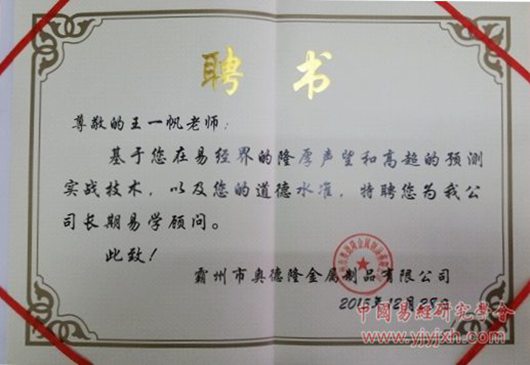 聘书
尊敬的王一帆老师：
基于您在易经界的隆厚声望和高超的预测
实战技术，以及您的道德水准，特聘您为我公
司长期易学顾问。
此致！
霸州市奥德隆金属制品有限公司
2015年12月28日
中國易經研究學會
www.yjyjxh.com